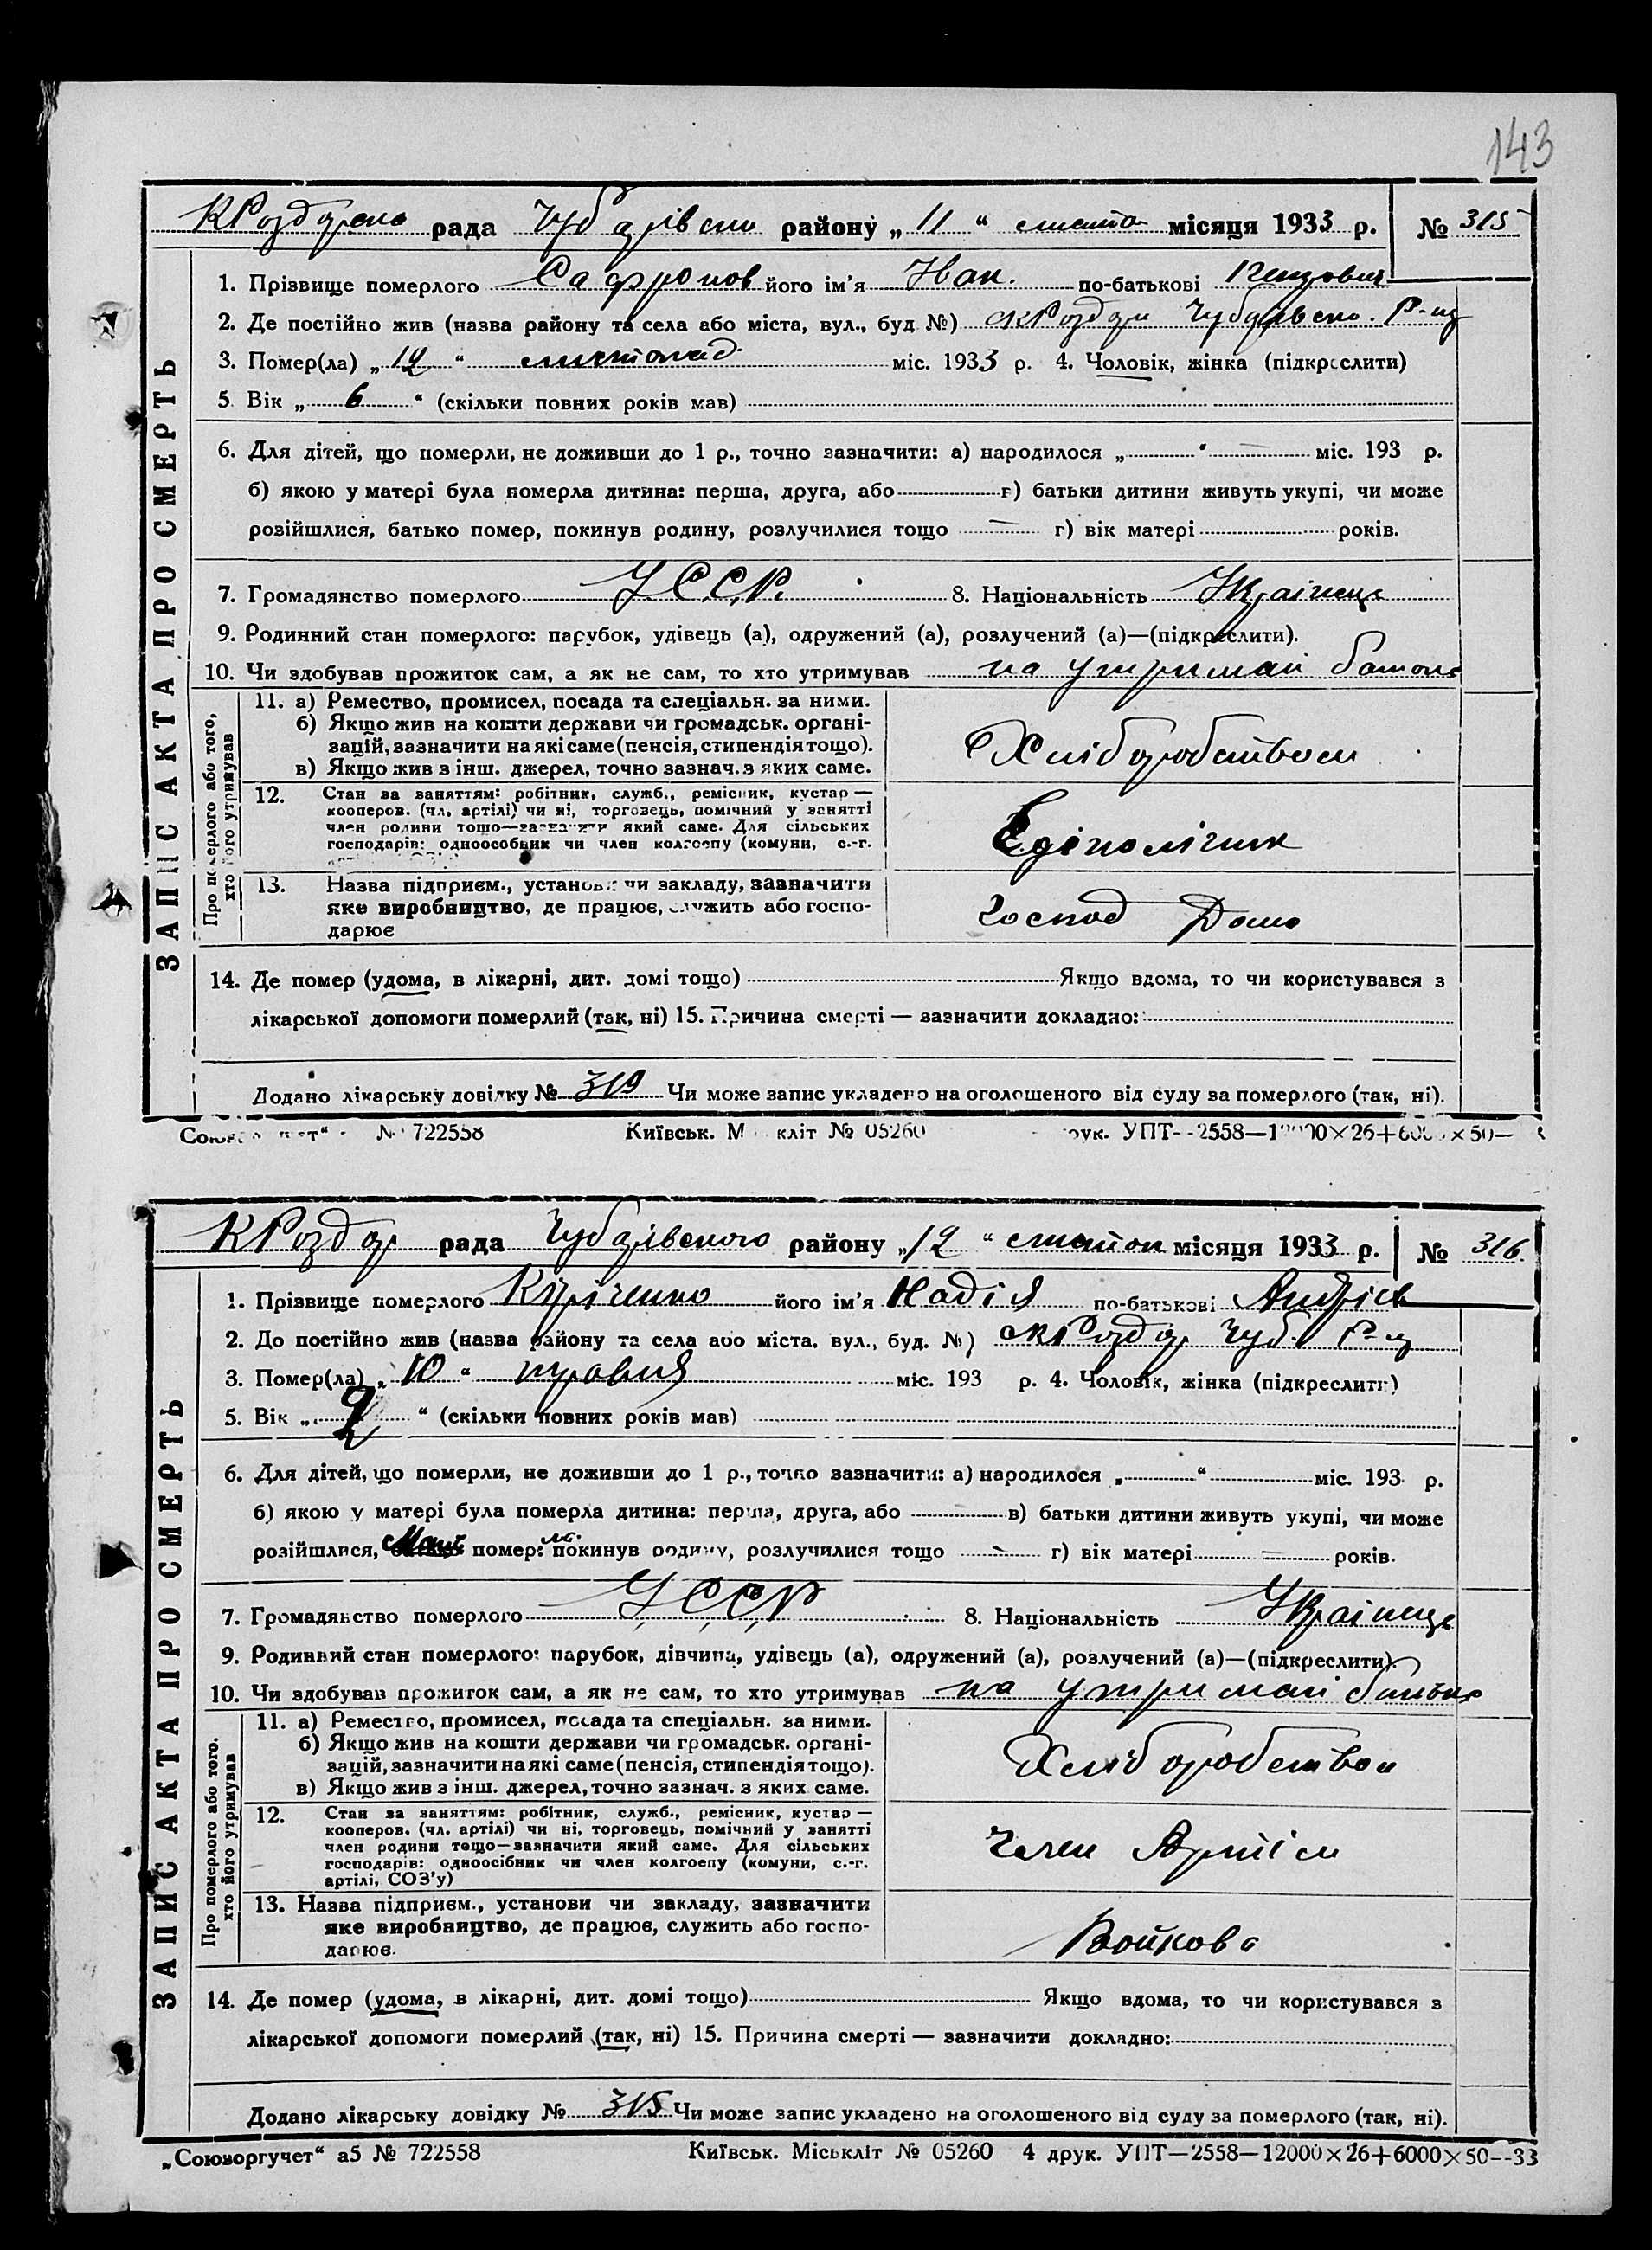 143
КРоздорська рада Чубарівськ району „ 11 “ листоп місяця 1933 р. № 315
1. Прізвище померлого Сафронов його ім'я Іван. по-батькові
2. Де постійно жив (назва району та села або міста, вул., буд №) сКРоздори Чубарівськ. Р-ну
3. Помер(ла) „ 12 “ листопад міс. 1933 р. 4. Чоловік, жінка (підкреслити)
5. Вік „ 6 “ (скільки повних років мав)
6. Для дітей, що померли, не доживши до 1 р., точно зазначити: а) народилося „ “ — міс. 193 р.
б) якою у матері була померла дитина: перша, друга, або в) батьки дитини живуть укупі, чи може
розійшлися, батько помер, покинув родину, розлучилися тощо — г) вік матері років.
7. Громадянство померлого УССР. 8. Національність Українець
9. Родинний стан померлого: парубок, удівець (а), одружений (а), розлучений (а)—(підкреслити).
10. Чи здобував прожиток сам, а як не сам, то хто утримував на утриман батька
11. а) Ремество, промисел, посада та спеціальн. за ними.
б) Якщо жив на кошти держави чи громадськ. органі-
зацій, зазначити на які саме (пенсія, стипендія тощо).
в) Якщо жив з інш. джерел, точно зазнач. з яких саме.
Хліборобством
12. Стан за заняттям: робітник, служб., ремісник, кустар —
кооперов. (чл. артілі) чи ні, торговець, помічний у занятті
член родини тощо—зазначити який саме. Для сільських
господарів: одноособник чи член колгоспу (комуни, с.-г.
Едіноличник
13. Назва підприєм., установи чи закладу, зазначити
яке виробництво, де працює, служить або госпо-
дарює
господ Дома
Про померлого або того,
хто його утримував
ЗАПИС АКТА ПРО СМЕРТЬ
14. Де помер (удома, в лікарні, дит. домі тощо) Якщо вдома, то чи користувався з
лікарської допомоги померлий (так, ні) 15. Причина смерті — зазначити докладно:
Додано лікарську довідку № 319 Чи може запис укладено на оголошеного від суду за померлого (так, ні).
№ 722558 Київськ. М кліт № 05260 друк. УПТ—2558—12000×26+6000×50—
КРоздор рада Чубарівського району „ 12 “ листоп місяця 1933 р. № 316
1. Прізвище померлого Кіріченко його ім'я Надія по-батькові Андрієв
2. До постійно жив (назва району та села або міста, вул., буд. №) сКРоздор Чуб. Р-ну
3. Помер(ла) „ 10 “ травня міс. 193 р. 4. Чоловік, жінка (підкреслити)
5. Вік „ 2 “ (скільки повних років мав)
6. Для дітей, що померли, не доживши до 1 р., точно зазначити: а) народилося „ “ міс. 193 р.
б) якою у матері була померла дитина: перша, друга, або в) батьки дитини живуть укупі, чи може
розійшлися, Мати помер: ла покинув родину, розлучилися тощо — г) вік матері — років.
7. Громадянство померлого УССР 8. Національність Українець
9. Родинний стан померлого: парубок, дівчина, удівець (а), одружений (а), розлучений (а)—(підкреслити).
10. Чи здобував прожиток сам, а як не сам, то хто утримував на утриман батька
11. а) Ремество, промисел, посада та спеціальн. за ними.
б) Якщо жив на кошти держави чи громадськ. органі-
зацій, зазначити на які саме (пенсія, стипендія тощо).
в) Якщо жив з інш. джерел, точно зазнач. з яких саме.
Хліборобством
12. Стан за заняттям: робітник, служб., ремісник, кустар —
кооперов. (чл. артілі) чи ні, торговець, помічний у занятті
член родини тощо—зазначити який саме. Для сільських
господарів: одноосібник чи член колгоспу (комуни, с.-г.
артілі, СОЗ'у)
член Артіли
13. Назва підприєм., установи чи закладу, зазначити
яке виробництво, де працює, служить або госпо-
дарює.
Войкова
Про померлого або того.
хто його утримував
ЗАПИС АКТА ПРО СМЕРТЬ
14. Де помер (удома, в лікарні, дит. домі тощо) Якщо вдома, то чи користувався з
лікарської допомоги померлий (так, ні) 15. Причина смерті — зазначити докладно:
Додано лікарську довідку № 315 Чи може запис укладено на оголошеного від суду за померлого (так, ні).
„Союзоргучет“ а5 № 722558 Київськ. Міськліт № 05260 4 друк. УПТ—2558—12000×26+6000×50--33